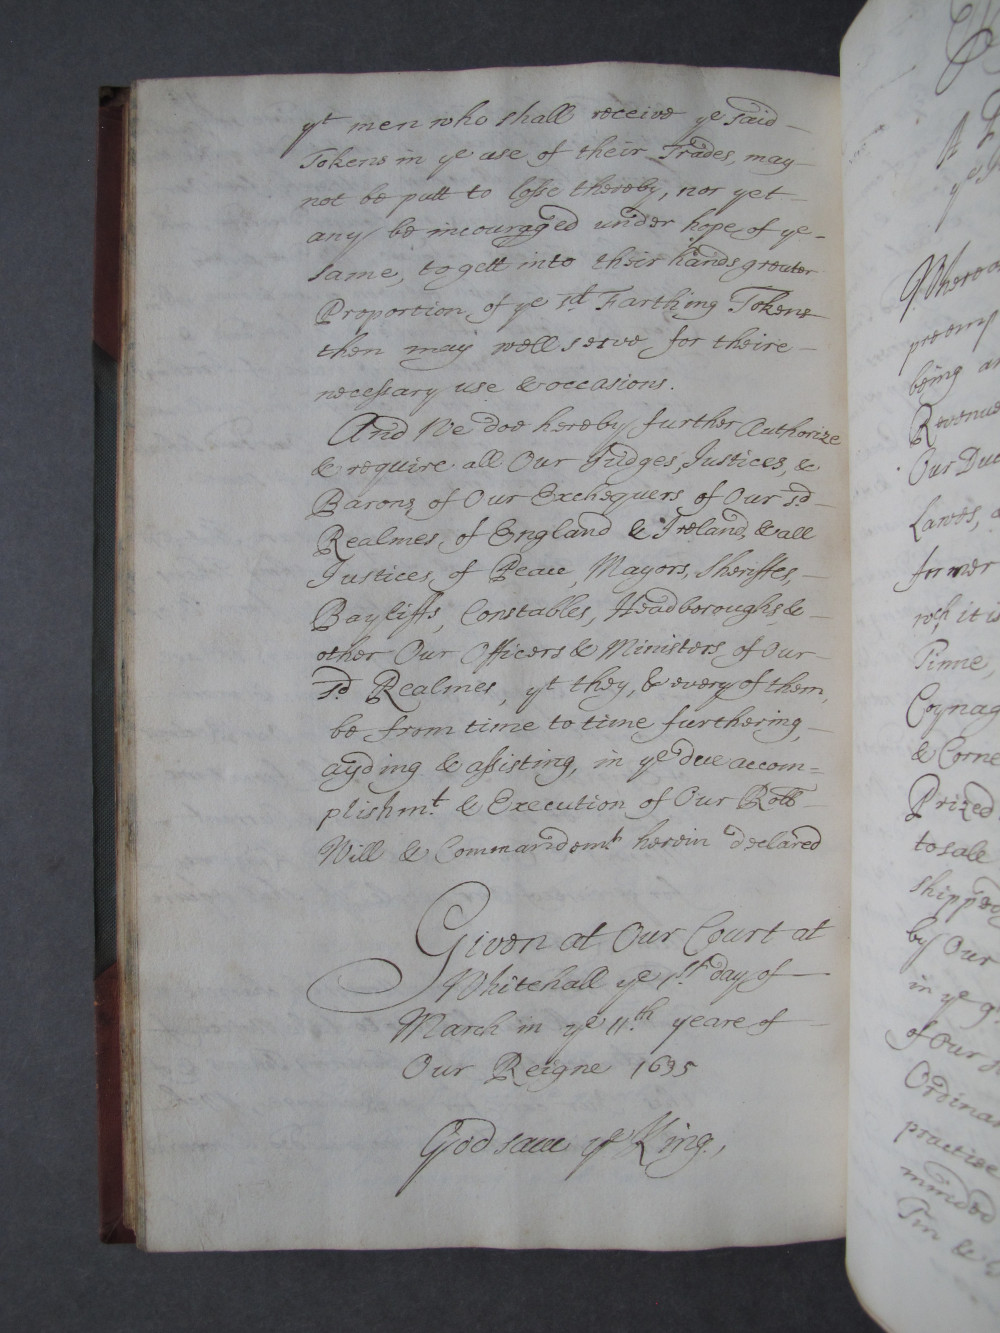 yt men who shall receive ye said
Tokens in ye use of their Trades, may
not be putt to losse thereby, nor yet
any be incouraged under hope of ye
same, to gett into their hands greater
Proportion of ye sd. Farthing Tokens
then may well serve for theire
necessary use & occasions.
And We doe hereby further Authorize
& require all Our Judges, Justices, &
Barons of Our Exchequers of Our sd.
Realmes of England & Ireland, & all
Justices of Peace, Mayors, Sheriffes,
Bayliffs, Constables, Headboroughs &
other Our Officers & Ministers of Our
sd. Realmes, yt they, & every of them,
be from time to time furthering,
ayding & assisting, in ye due accom=
plishmt. & Execution of Our Roll
Will & Commandemt. herein declared
Given at Our Court at
Whitehall ye 1st. day of
March in ye 11th. yeare of
Our Reigne 1635
God save ye King.
Whereas
preemp
being an
Revenue
Our Du
Lawes, a
former
wch it is
Tinne,
Coynag
& Corne
Prized
to sale
shipped
by Our
in ye
of Our
Ordina
practise
mended
Tin &